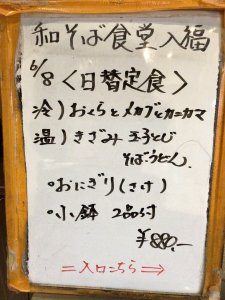 和そば食堂入福
6/8 <日替定食>
冷)おくらとメカブとカニカマ
温)きざみ玉子とじ
そばうどん
•おにぎり(さけ)
•小鉢 2品付
¥880.-
=入口こちら⇒